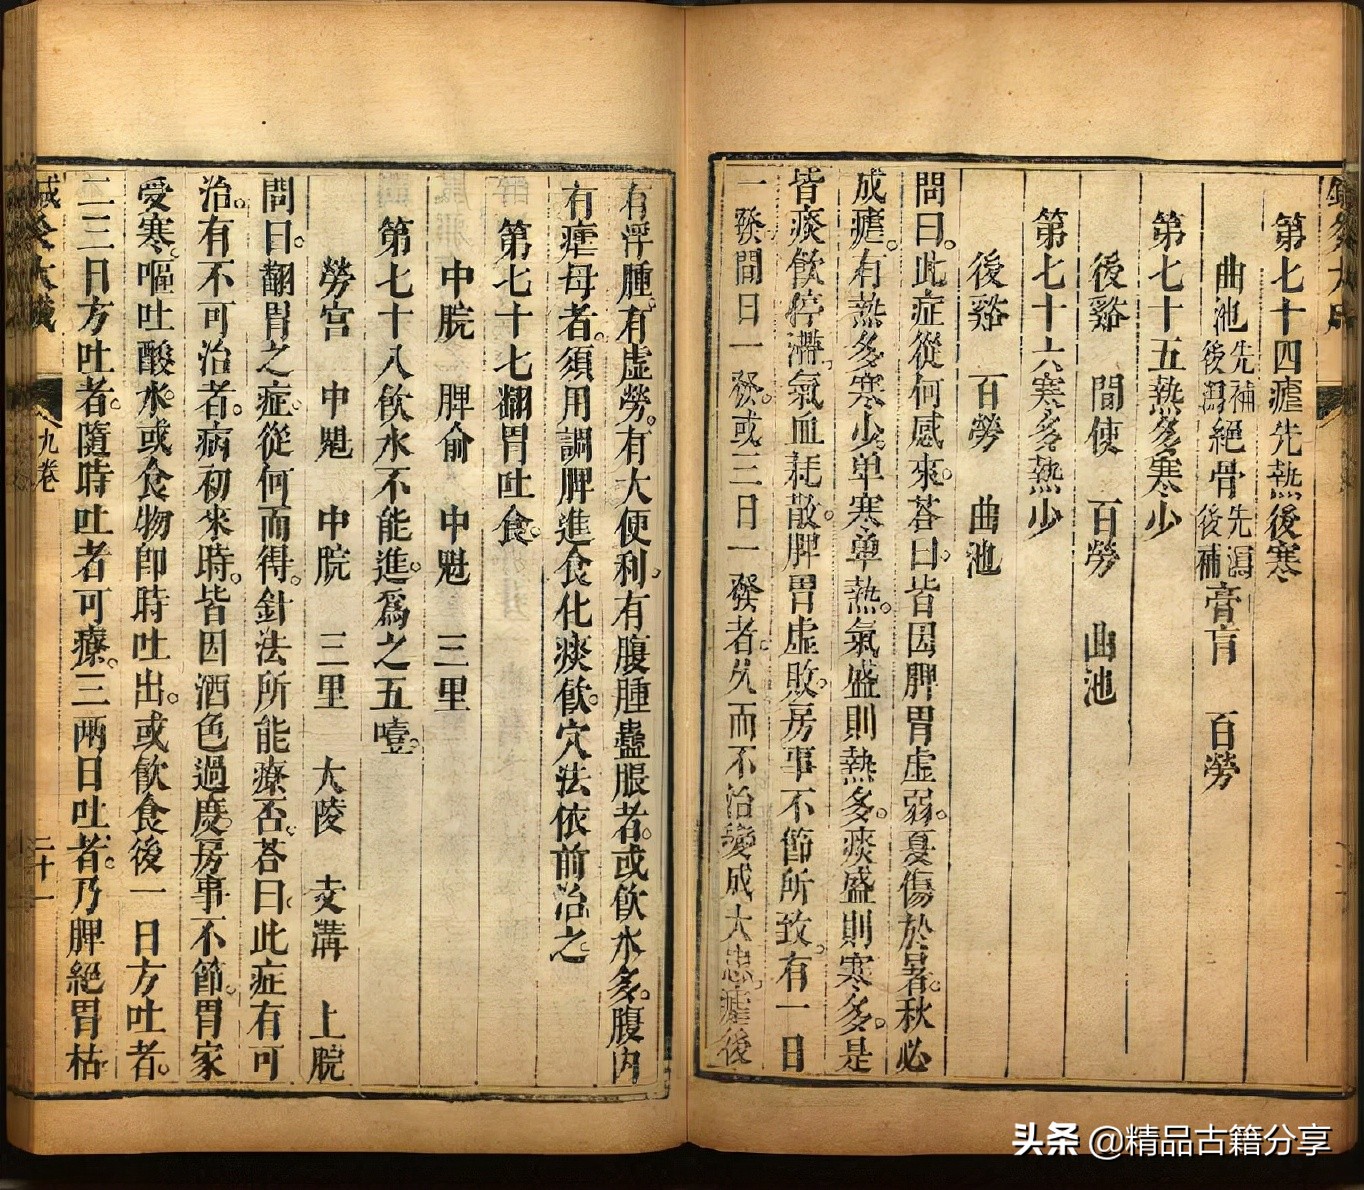 第七十四瘧先熱後寒
曲池先補後瀉絕骨先瀉後補膏肓 百勞
第七十五熱多寒少
後谿 間使 百勞 曲池
第七十六寒多熱少
後谿 百勞 曲池
問曰。此症從何感來。荅曰。皆因脾胃虛弱。憂傷於暑。秋必
成瘧。有熱多寒少。单寒单熱。氣盛則熱多。痰盛則寒多。是
皆痰飲停滯。氣血耗散。脾胃虛敗。房事不節所致。有一日
一發。間日一發。或三日一發者。久而不治。變成大患。瘧後
有浮腫。有虛勞。有大便利。有腹腫蠱脹者。或飲水多。腹內
有瘧母者。須用調脾進食化痰飲。穴法依前治之。
第七十七翻胃吐食。
中脘 脾俞 中魁 三里
第七十八飲水不能進。爲之五噎。
勞宮 中魁 中脘 三里 大陵 支溝 上脘
問曰。翻胃之症。從何而得。針法所能療否。荅曰。此症有可
治。有不可治者。病初來時。皆因酒色過度。房事不節。胃家
受寒。嘔吐酸水。或食物即時吐出。或飲食後一日方吐者。
二三日方吐者。隨時吐者可療。三兩日吐者。乃脾絕胃枯
九卷
二十一
头条 @精品古籍分享